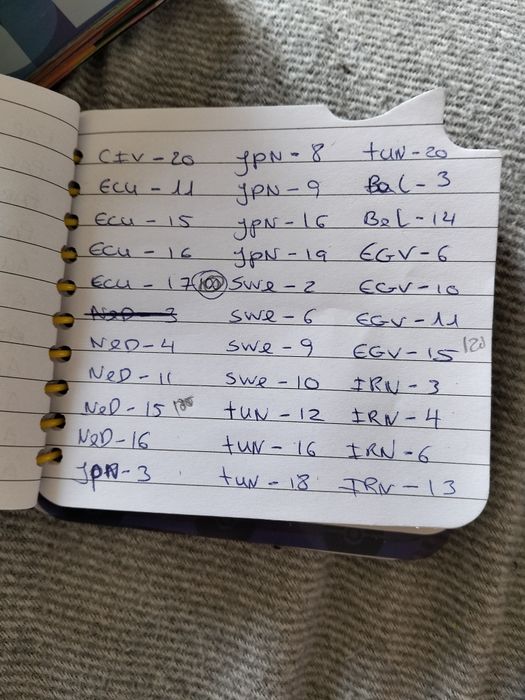 CIV - 20
ECU - 11
ECU - 15
ECU - 16
ECU - 17 (100)
NED - 3
NED - 4
NED - 11
NED - 15
NED - 16
JPN - 3
JPN - 8
JPN - 9
JPN - 16
JPN - 19
SWE - 2
SWE - 6
SWE - 9
SWE - 10
TUN - 12
TUN - 16
TUN - 18
TUN - 20
BEL - 3
BEL - 14
EGY - 6
EGY - 10
EGY - 11
EGY - 15 120
IRN - 3
IRN - 4
IRN - 6
IRN - 13